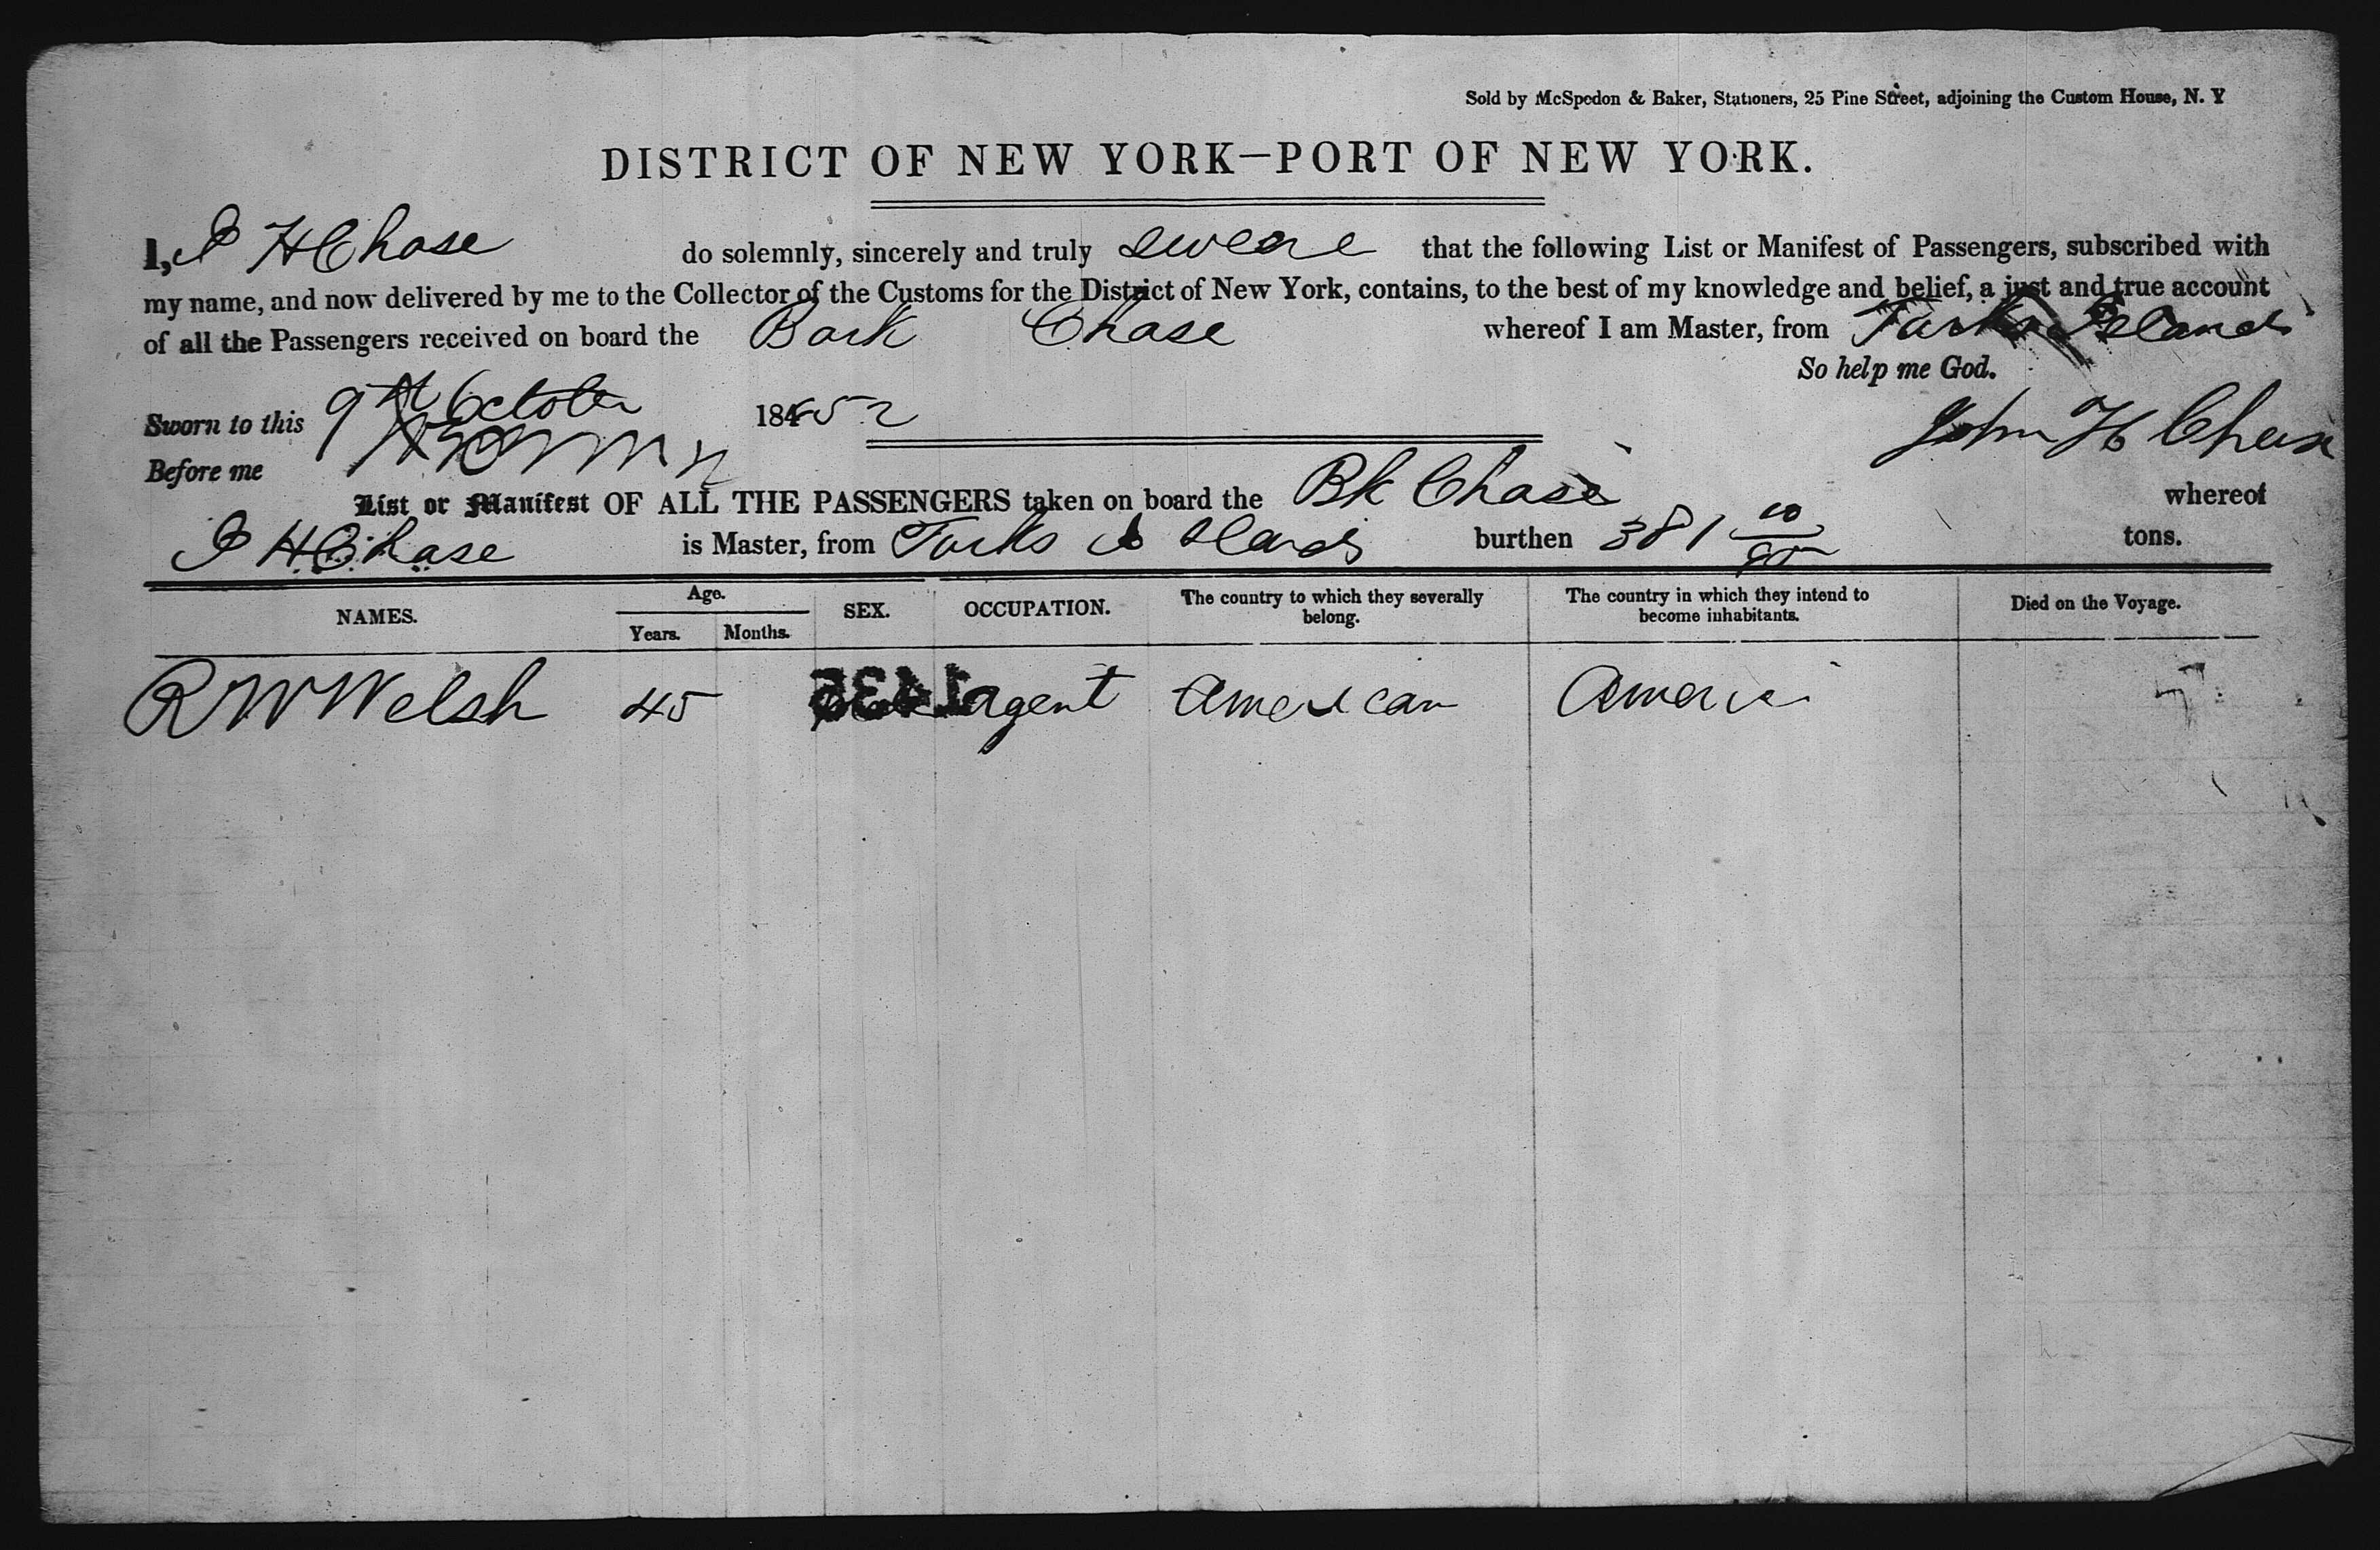 Sold by McSpedon & Baker, Stationers, 25 Pine Street, adjoining the Custom House, N. Y
DISTRICT OF NEW YORK—PORT OF NEW YORK.
I, J H Chase do solemnly, sincerely and truly sweare that the following List or Manifest of Passengers, subscribed with
my name, and now delivered by me to the Collector of the Customs for the District of New York, contains, to the best of my knowledge and belief, a just and true account
of all the Passengers received on board the Bark Chase whereof I am Master, from Turks Islands
So help me God.
Sworn to this 9th October 1852
John H Chase
Before me
List or Manifest OF ALL THE PASSENGERS taken on board the Bk Chase whereof
J H Chase is Master, from Turks Islands burthen 381 10/95 tons.
NAMES. Age. Years. Months. SEX. OCCUPATION. The country to which they severally belong. The country in which they intend to become inhabitants. Died on the Voyage.
R W Welsh 45 1435 agent American America